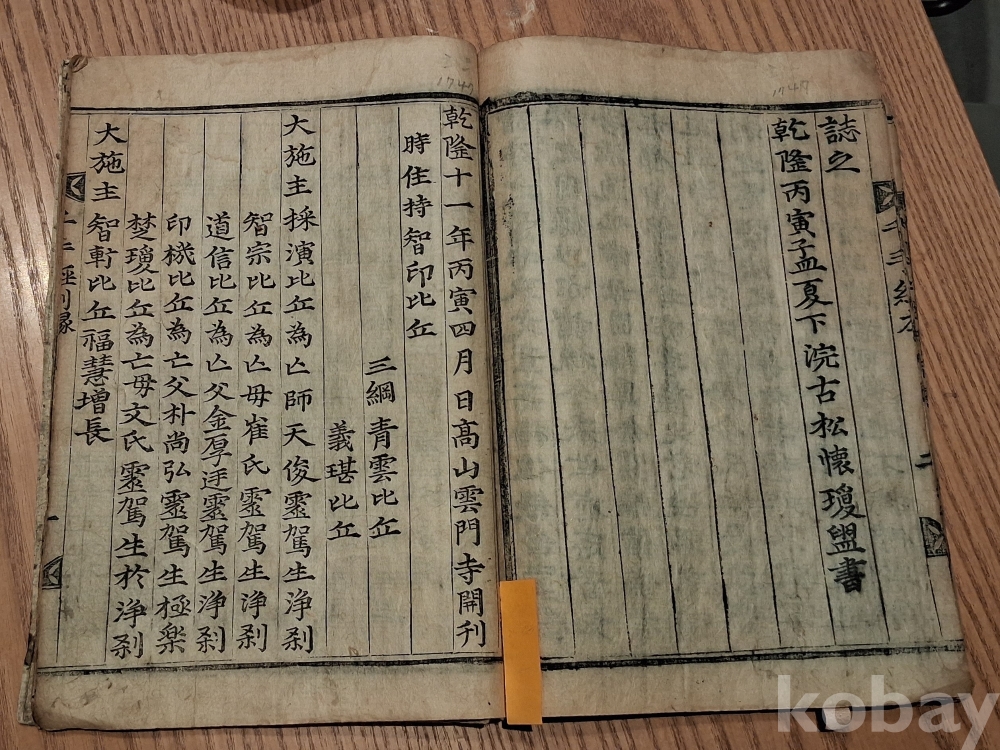 誌之
乾隆丙寅孟夏下浣古松懷瓊盥書
1747
1747
乾隆十一年丙寅四月日高山雲門寺開刊
時住持智印比丘
三綱青雲比丘
義琎比丘
大施主採演比丘為亡師天俊靈駕生淨刹
智宗比丘為亡母崔氏靈駕生淨刹
道信比丘為亡父金厚迬靈駕生淨刹
印機比丘為亡父朴尚弘靈駕生極楽
梵瓊比丘為亡母文氏靈駕生於淨刹
大施主智暫比丘福慧增長
kobay